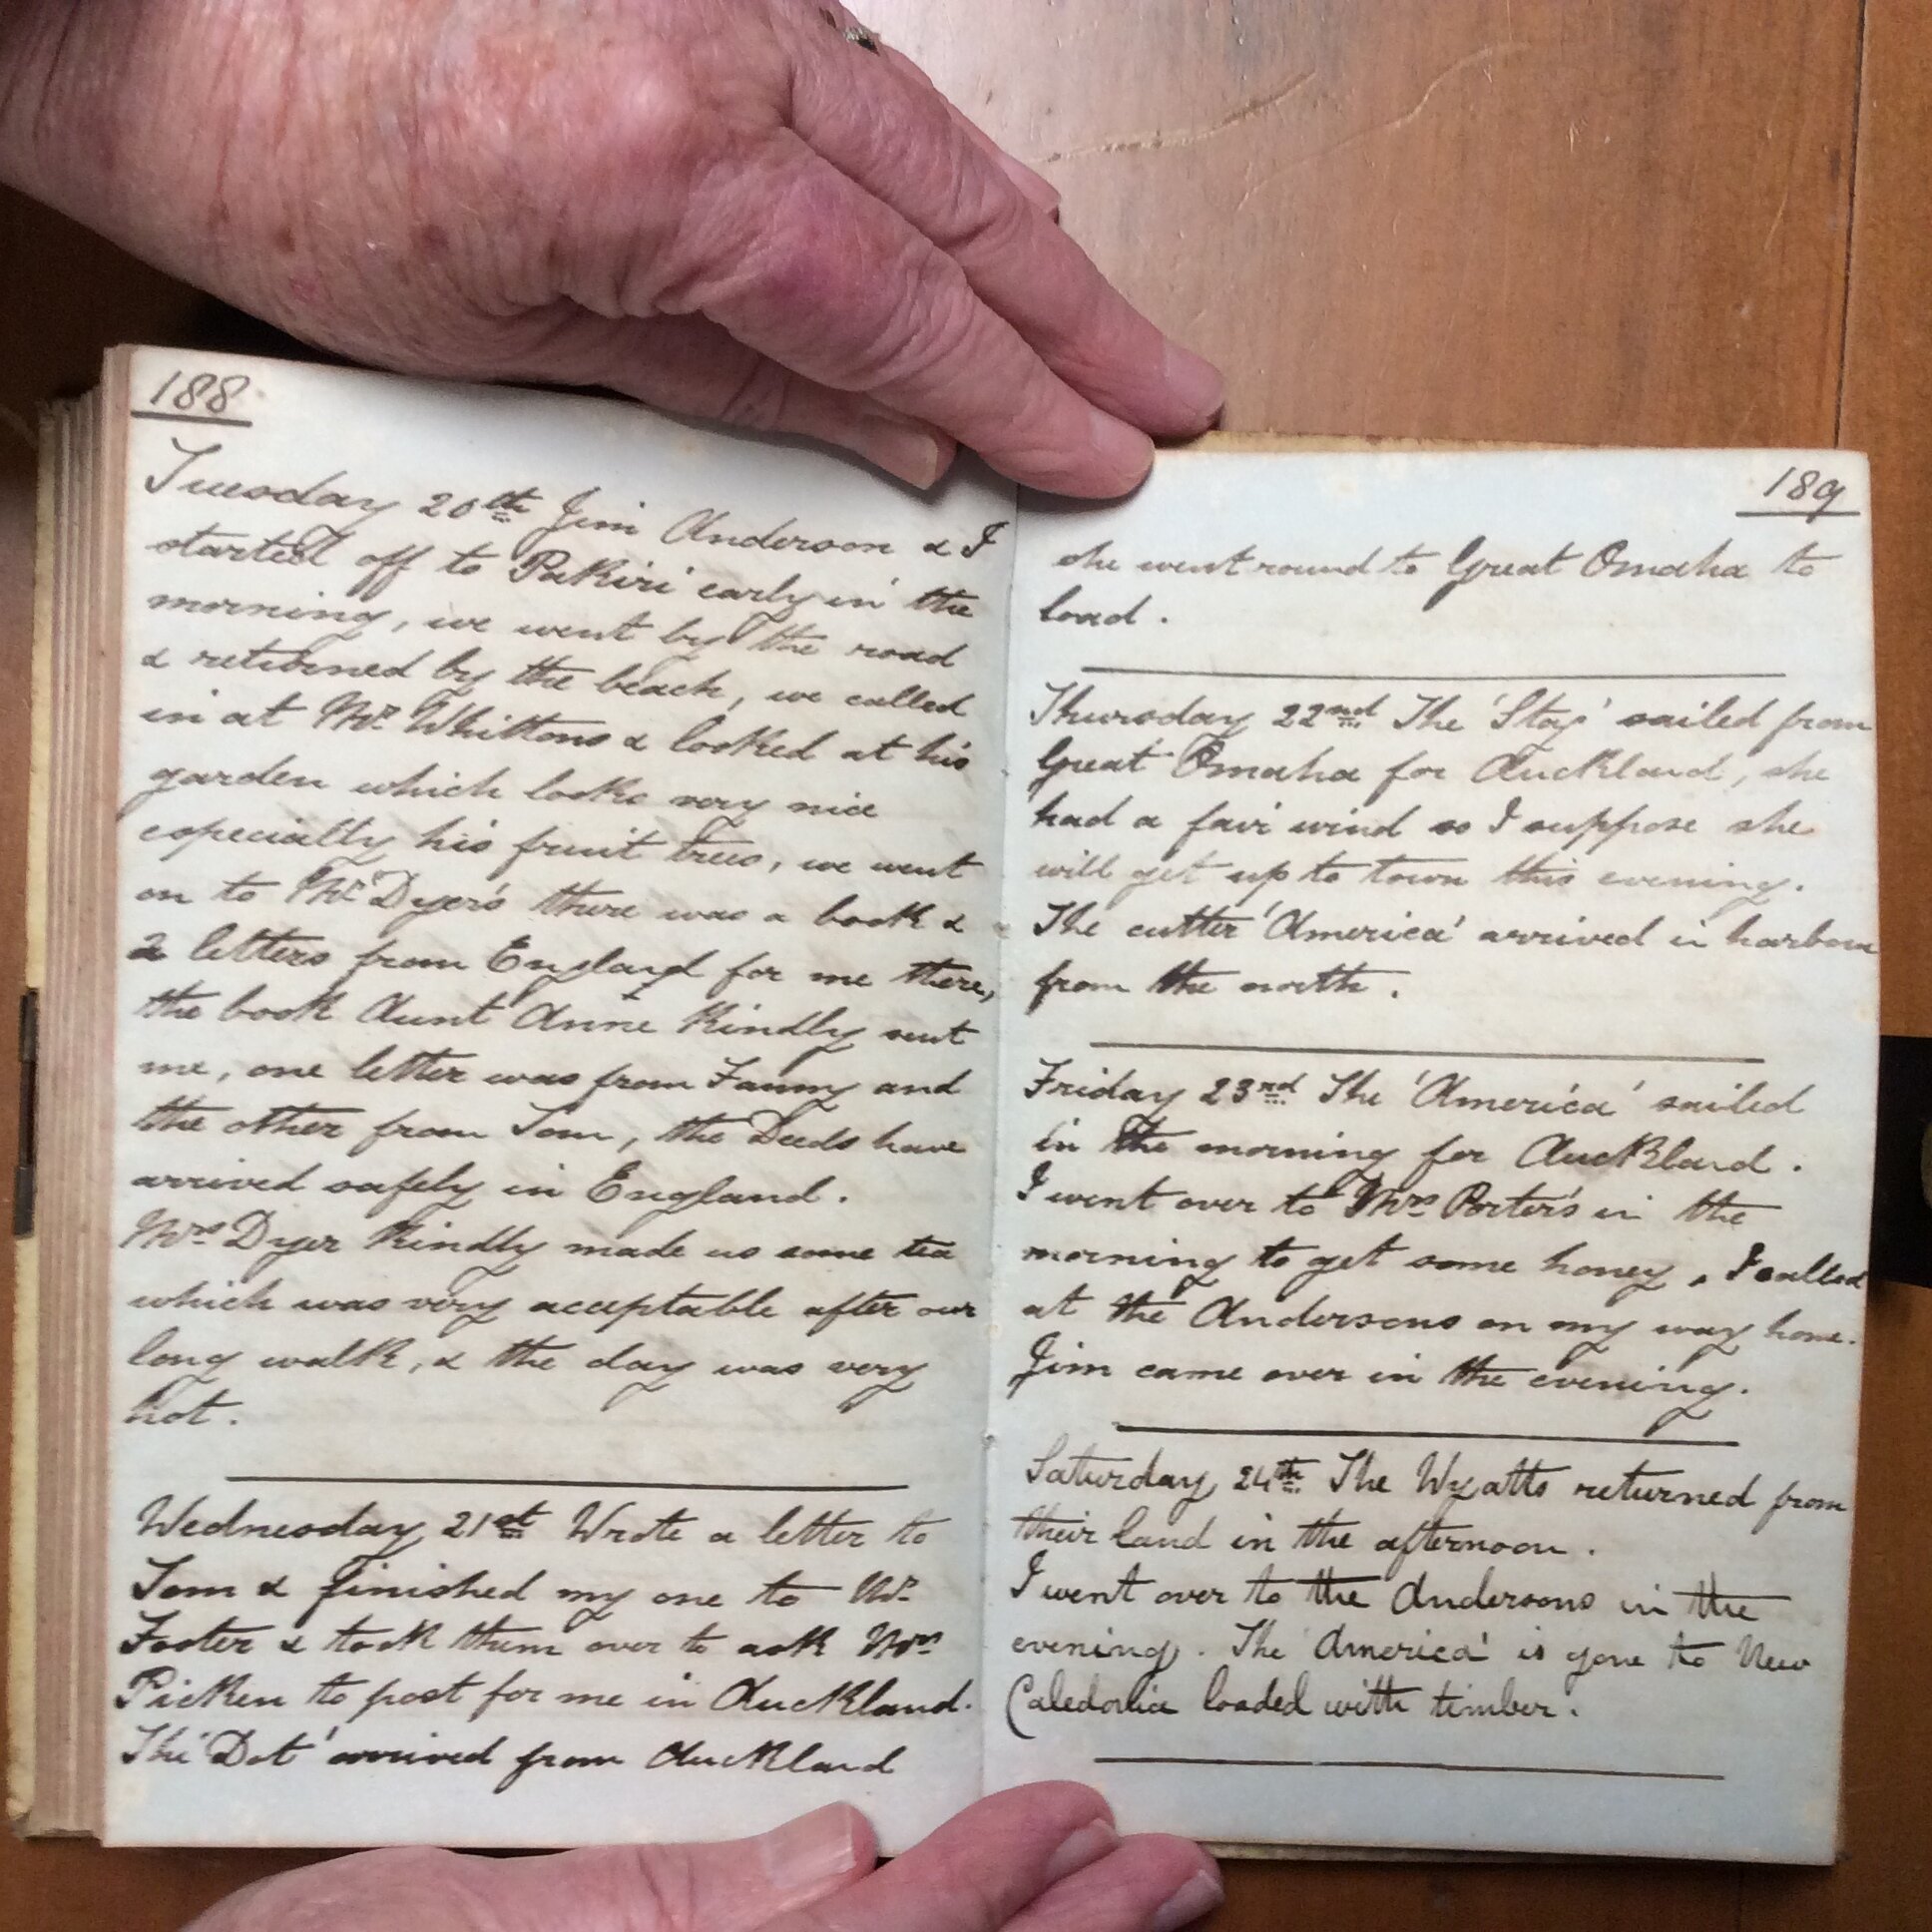 188
Tuesday 20th Jim Anderson & I
started off to Pakiri early in the
morning, we went by the road
& returned by the beach, we called
in at Mr. Whittons & looked at his
garden which looks very nice
especially his fruit trees, we went
on to Mr. Dyer's there was a book &
2 letters from England for me there,
the book Aunt Anne kindly sent
me, one letter was from Fanny and
the other from Tom, the Deeds have
arrived safely in England.
Mrs Dyer kindly made us some tea
which was very acceptable after our
long walk, & the day was very
hot.
Wednesday 21st Wrote a letter to
Tom & finished my one to Mr.
Foster & took them over to ask Mrs
Picken to post for me in Auckland.
The 'Dot' arrived from Auckland
189
she went round to Great Omaha to
load.
Thursday 22nd The 'Stag' sailed from
Great Omaha for Auckland, she
had a fair wind so I suppose she
will get up to town this evening.
The cutter 'America' arrived in harbour
from the north.
Friday 23rd The 'America' sailed
in the morning for Auckland.
I went over to Mrs Porter's in the
morning to get some honey, I called
at the Andersons on my way home.
Jim came over in the evening.
Saturday 24th The Wyatts returned from
their land in the afternoon.
I went over to the Andersons in the
evening. The 'America' is gone to New
Caledonia loaded with timber.